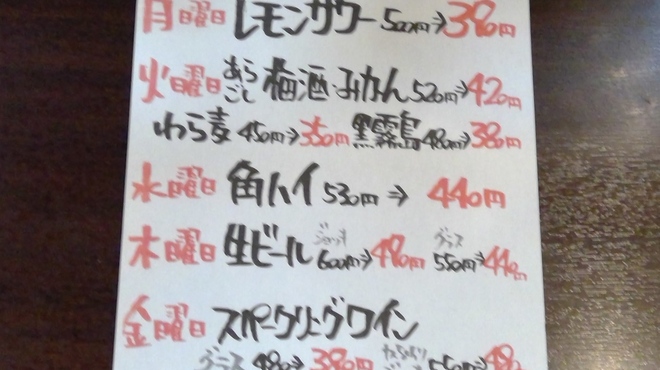 月曜日 レモンサワー 500円⇒390円
火曜日 あらごし 梅酒・みかん 520円⇒420円
わら麦 450円⇒350円 黒霧島 480円⇒380円
水曜日 角ハイ 530円⇒ 440円
木曜日 生ビール ジョッキ 600円⇒490円 グラス 550円⇒440円
金曜日 スパークリングワイン
グラス 480⇒380円